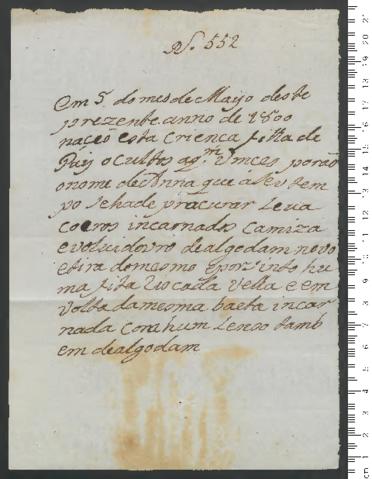 N.º 552
em 5. do mes de Mayo deste
prezente anno de 1800
naceo esta crienca filha de
Pais ocultos aq.m Vmces porão
o nome de Anna que a seu tem
po sehade pràcurar Leva
coeros incarnados Camiza
e volvidouro de algodam novo
etira domesmo epor sinto hu
ma fita Uzcada vella e em
volta damesma baeta incar
nada Com hum Lenso tamb
em dealgodam